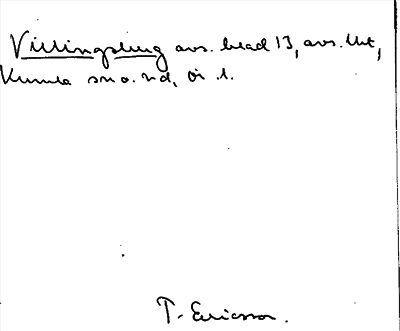 Villingsberg avs. blad 13, avs. Utt,
Kumla sn o. hd, Ör. l.
T. Ericsson.